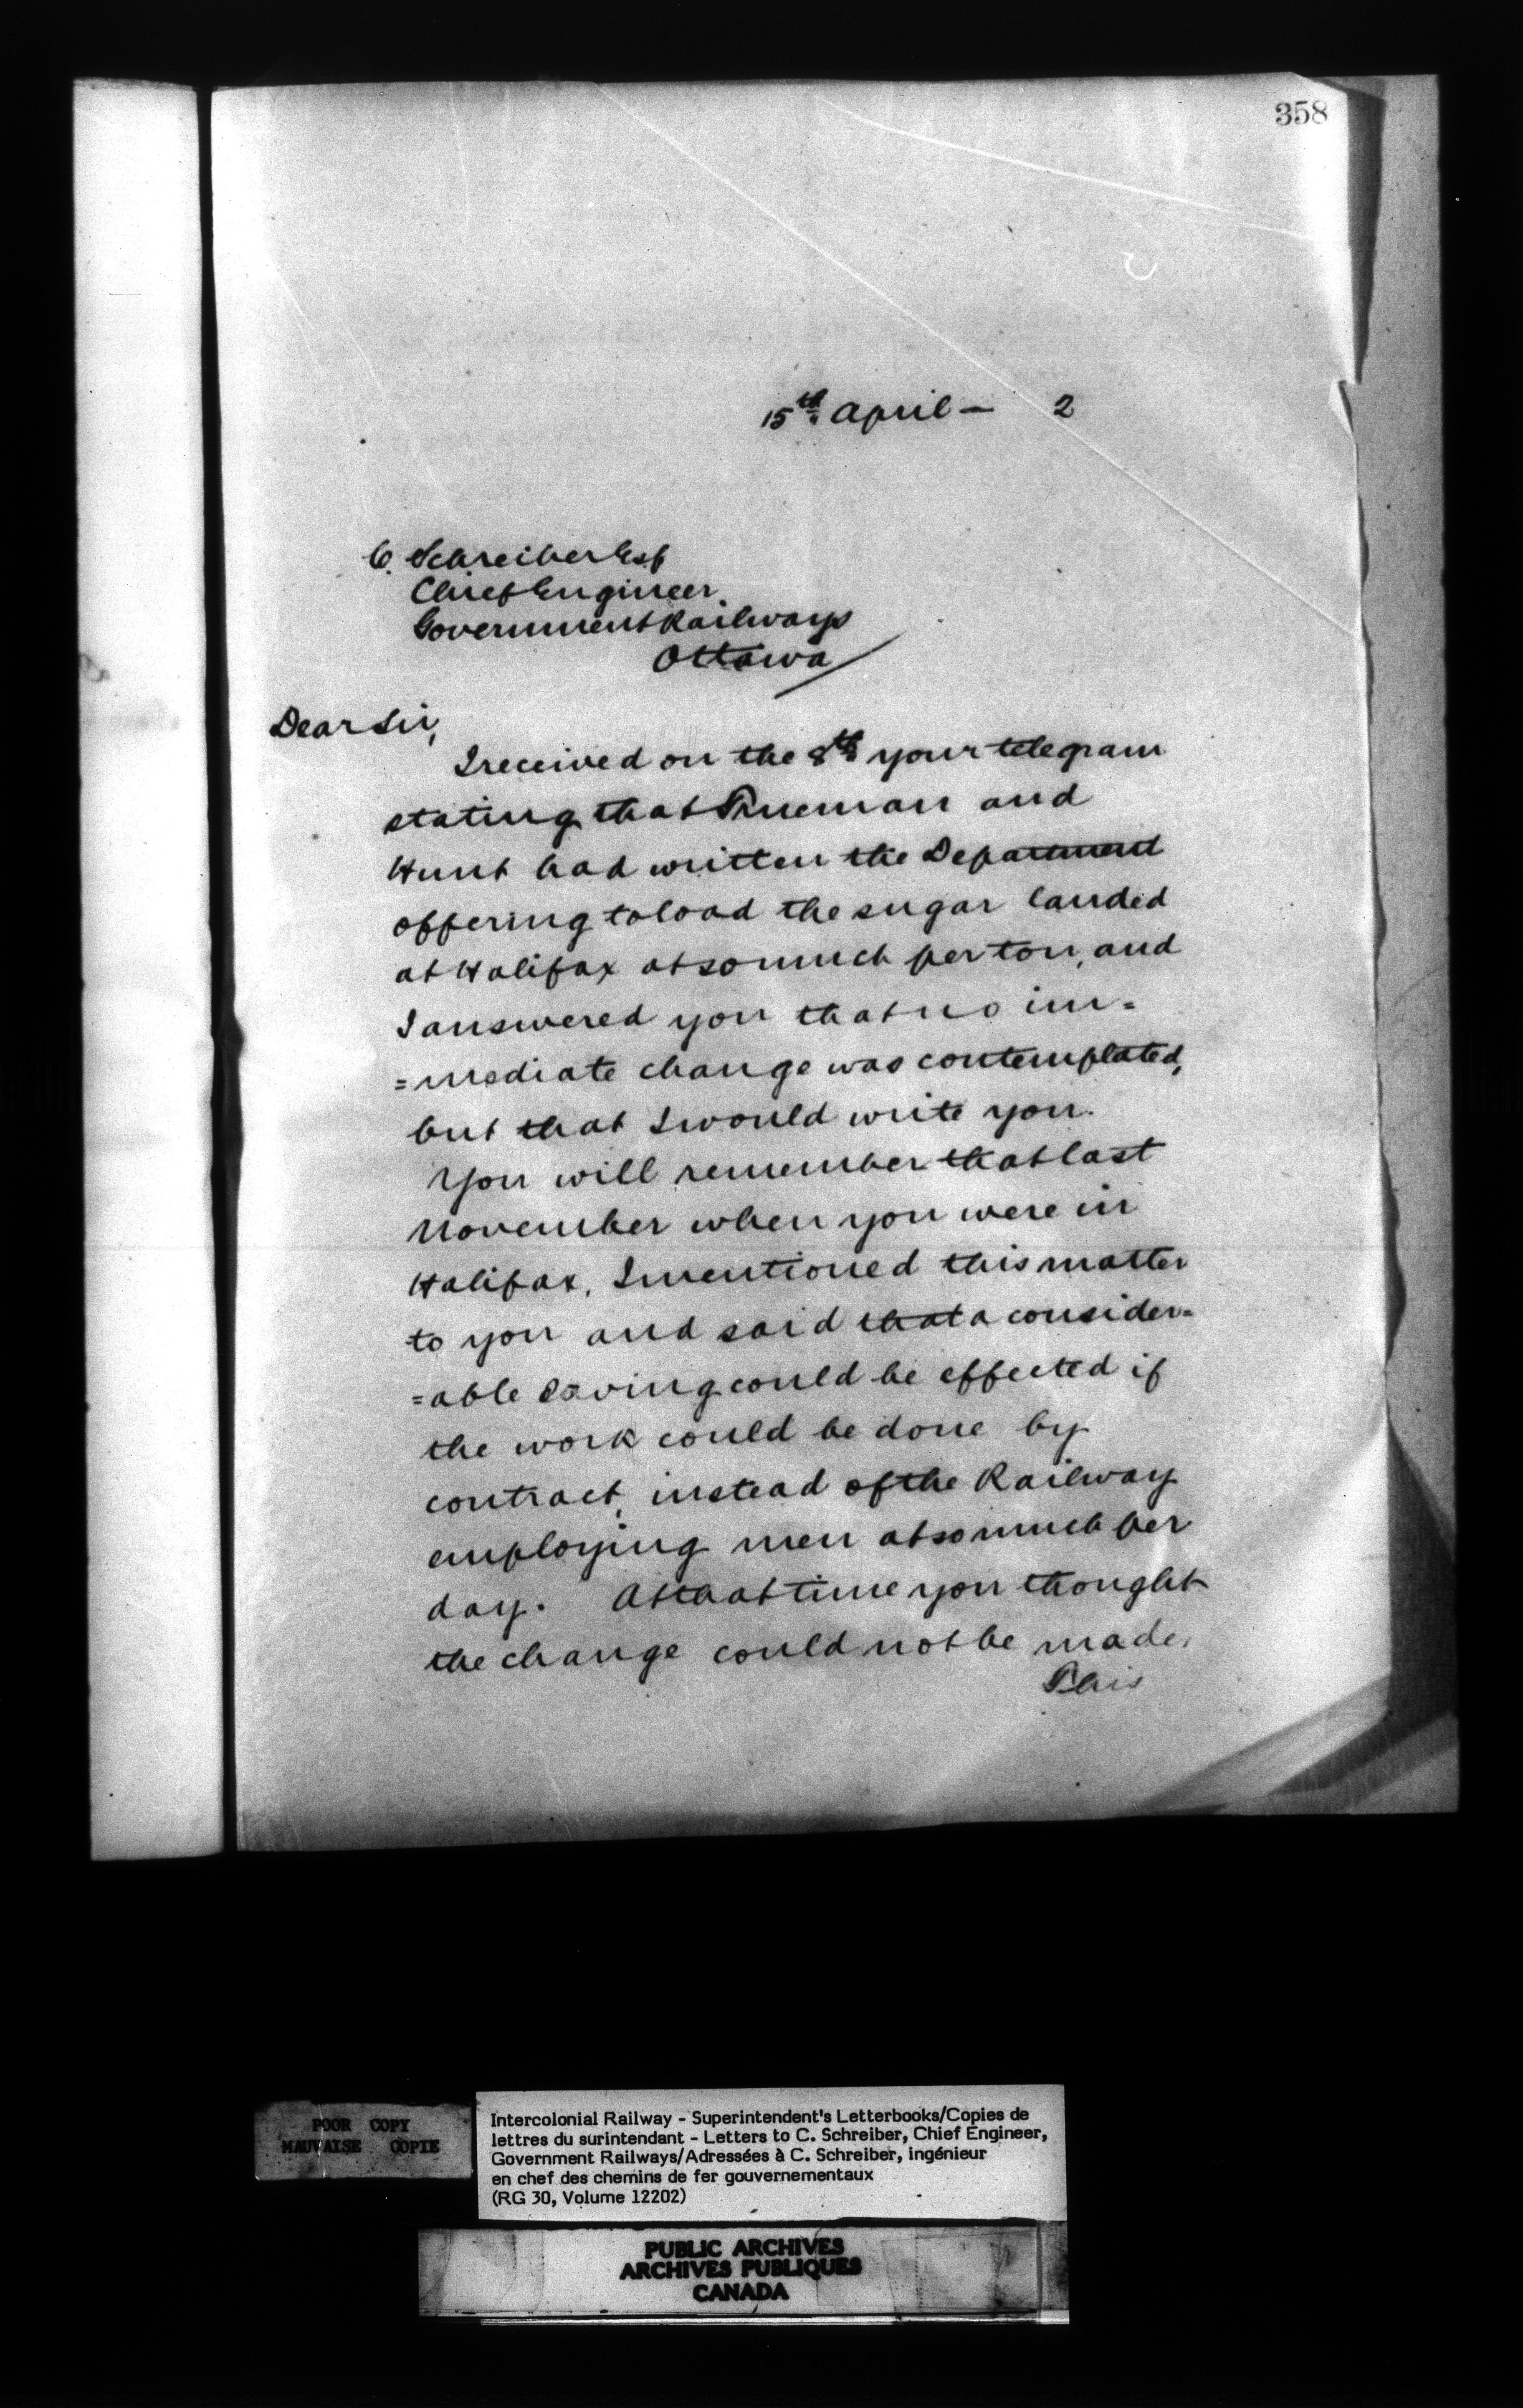 358
15th April — 2
C. Schreiber Esq
Chief Engineer
Government Railways
Ottawa
Dear Sir,
I received on the 8th your telegram
stating that Trueman and
Hunt had written the Department
offering to load the sugar landed
at Halifax at so much per ton, and
I answered you that no im=
=mediate change was contemplated,
but that I would write you.
You will remember that last
November when you were in
Halifax, I mentioned this matter
to you and said that a consider=
=able saving could be effected if
the work could be done by
contract, instead of the Railway
employing men at so much per
day. At that time you thought
the change could not be made.
This
POOR COPY
MAUVAISE COPIE
Intercolonial Railway - Superintendent's Letterbooks/Copies de
lettres du surintendant - Letters to C. Schreiber, Chief Engineer,
Government Railways/Adressées à C. Schreiber, ingénieur
en chef des chemins de fer gouvernementaux
(RG 30, Volume 12202)
PUBLIC ARCHIVES
ARCHIVES PUBLIQUES
CANADA